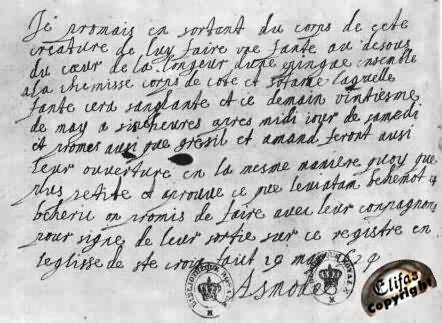 Je promais en sortant du corps de cete
creature de luy faire vne fante au desous
du cœur de la longeur dune epingue ensemble
a la chemisse corps de cote et sotane laquelle
fante cera sanglante et ce demain vintiesme
de may a sinc heures apres midi iour de samedi
et promes ausi que gresil et amand feront ausi
leur ouverture en la mesme maniere quoy que
plus petite et aprouue ce que leviatam behemot
beherie on promis de faire avec leur conpagnon
pour signe de leur sortie sur ce registre en
leglisse de ste croix faict 19 may 1629
Asmodee
BIBLIOTHEQUE
Elifas
Copyright